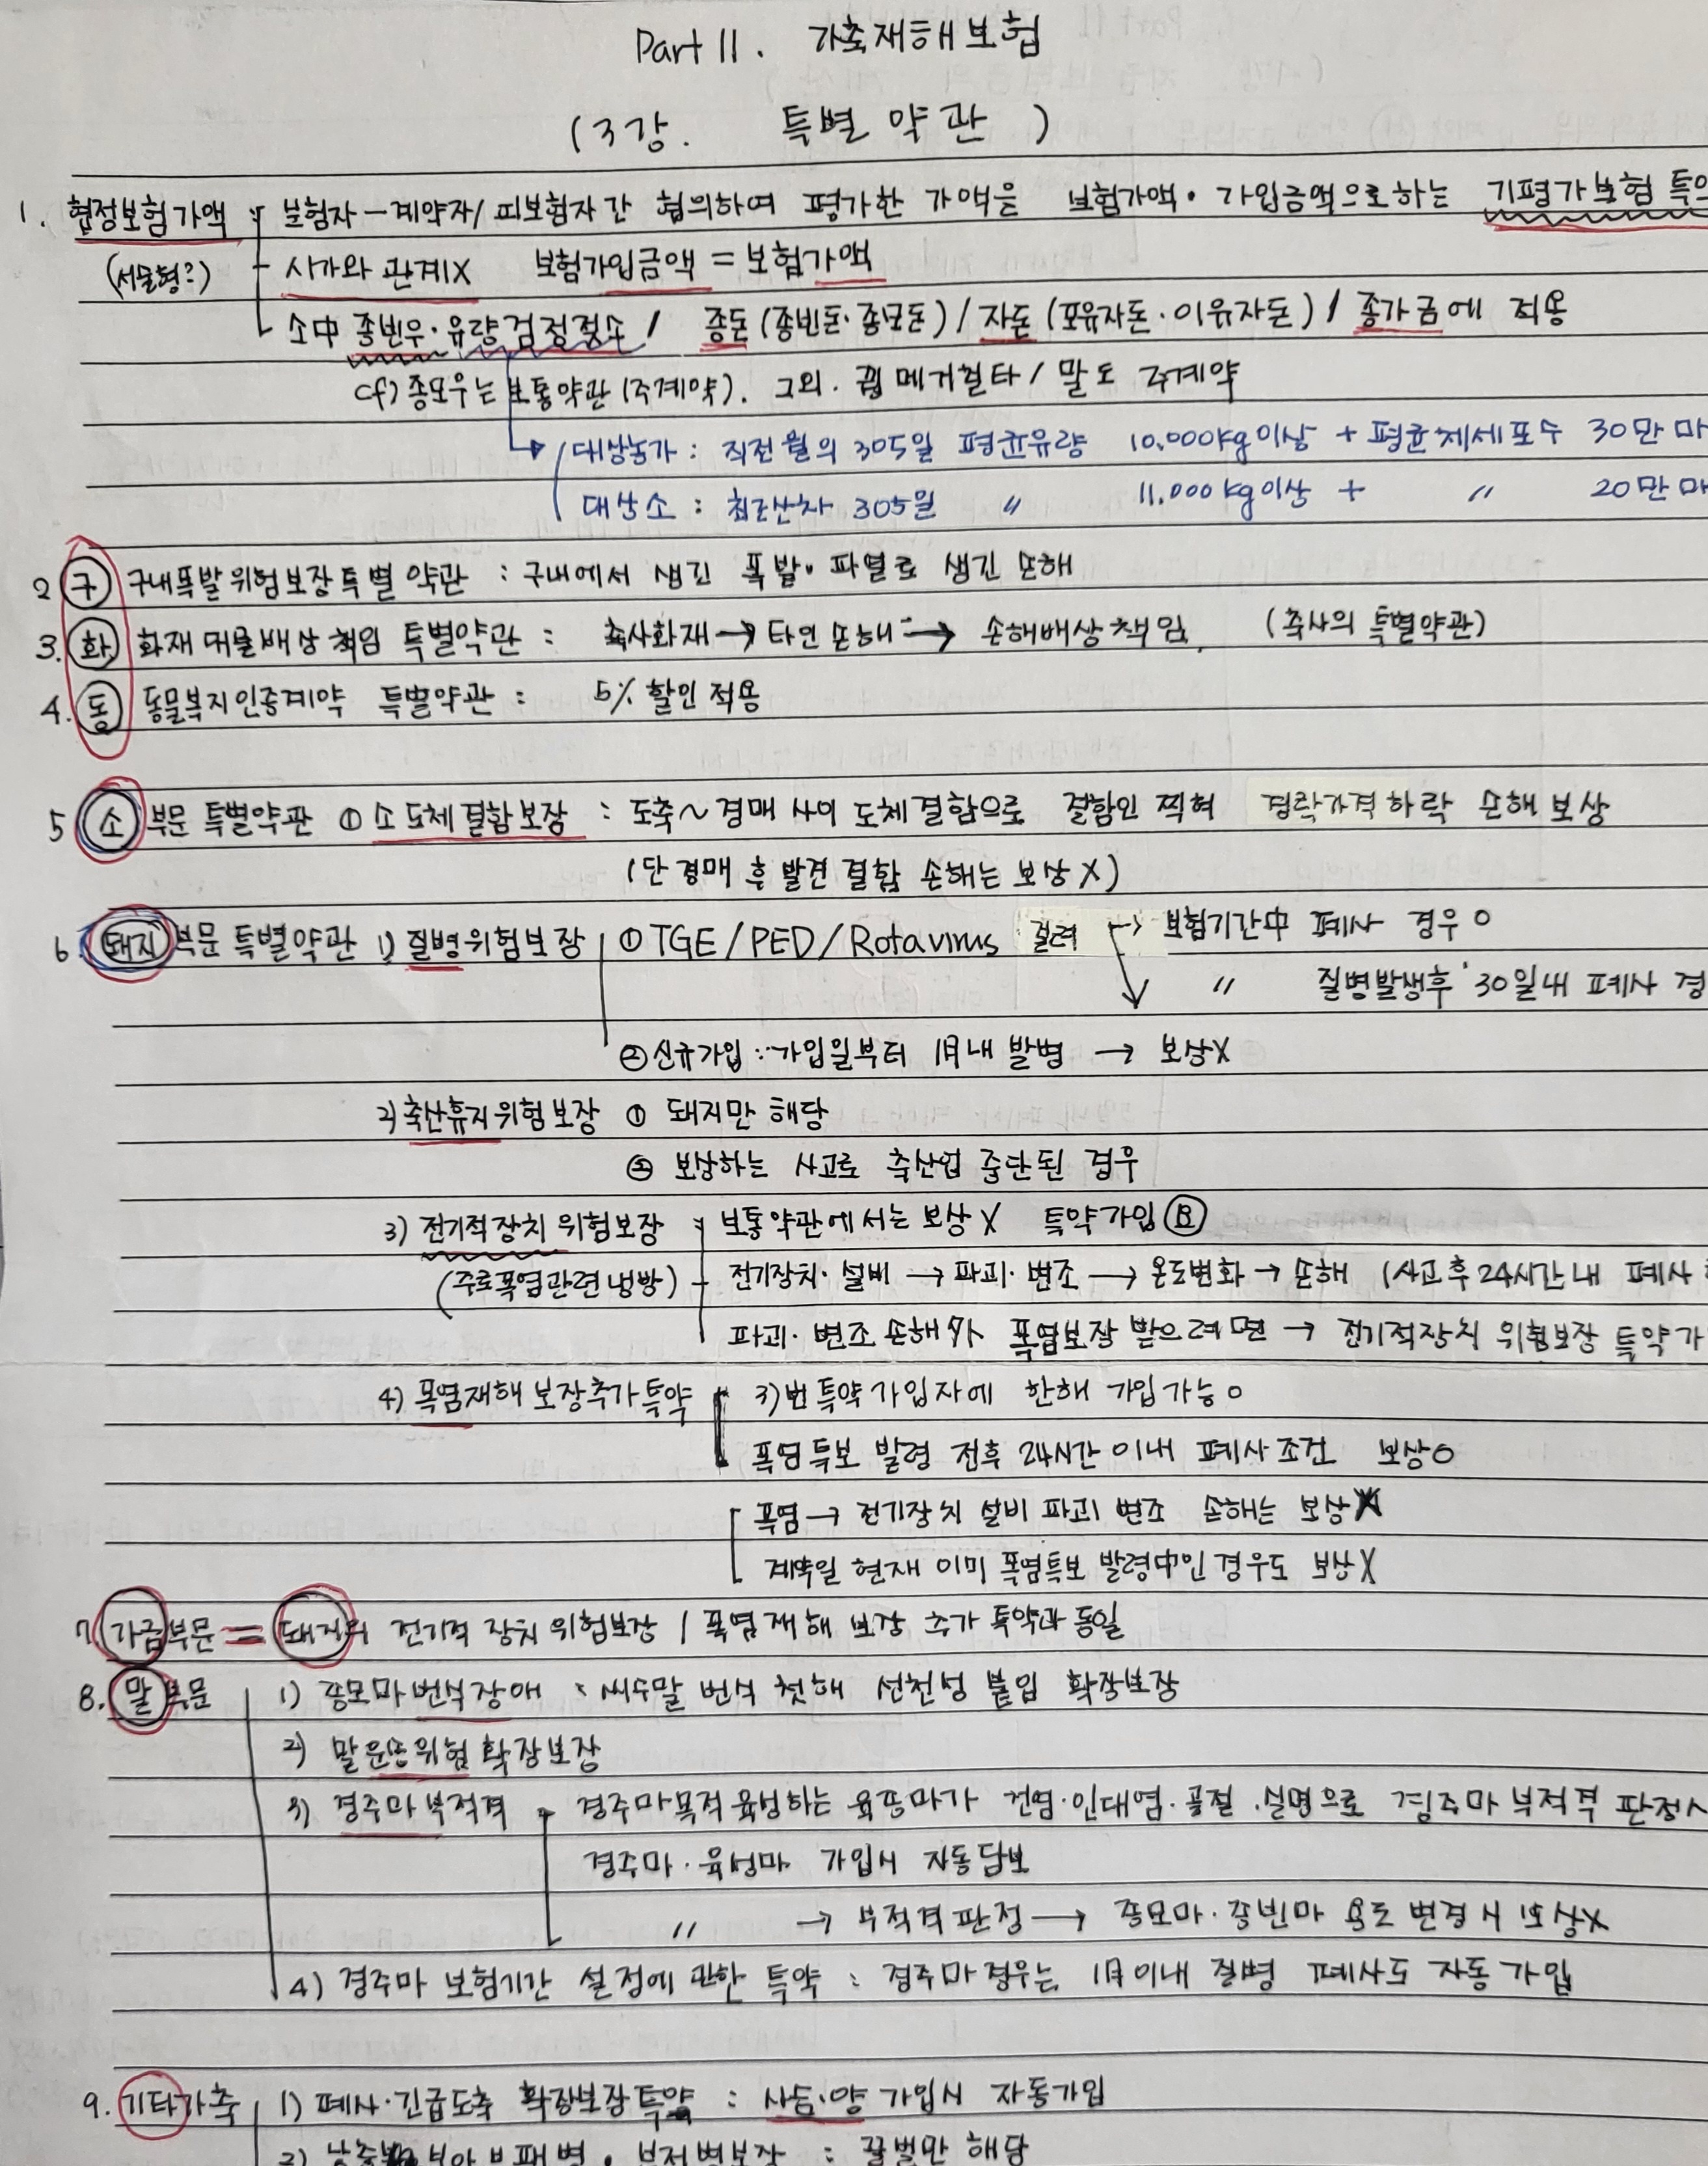 Part 11. 가축재해보험
(3강. 특별약관)
1. 협정보험가액 - 보험자-계약자/피보험자간 협의하여 평가한 가액을 보험가액·가입금액으로하는 기평가보험 특약
(서술형?) - 시가와 관계X 보험가입금액 = 보험가액
소中 종빈우·유량검정젖소 / 종돈(종빈돈·종모돈) / 자돈(포유자돈·이유자돈) / 종가금에 적용
cf) 종모우는 보통약관(주계약). 그외. 꿩 메거칠타 / 말도 주계약
대상농가 : 직전월의 305일 평균유량 10.000kg이상 + 평균체세포수 30만 마
대상소 : 최근산차 305일 〃 11.000kg이상 + 〃 20만 마
2 구 구내폭발위험보장특별약관 : 구내에서 생긴 폭발·파열로 생긴 손해
3. 화 화재대물배상책임 특별약관 : 축사화재 → 타인손해 → 손해배상책임. (축사의 특별약관)
4. 동 동물복지인증계약 특별약관 : 5% 할인적용
5 소 부문 특별약관 ① 소도체결함보장 : 도축~경매 사이 도체결함으로 결함인 찍혀 경락가격하락 손해보상
(단 경매 후 발견 결함 손해는 보상X)
6. 돼지 부문 특별약관 1) 질병위험보장 ① TGE/PED/Rotavirus 걸려 → 보험기간中 폐사 경우 O
〃 질병발생후 30일내 폐사 경
② 신규가입 : 가입일부터 1月내 발병 → 보상X
2) 축산휴지위험보장 ① 돼지만 해당
② 보상하는 사고로 축산업 중단된 경우
3) 전기적장치 위험보장 - 보통약관에서는 보상X 특약가입 要
(주로폭염관련냉방) - 전기장치·설비 → 파괴·변조 → 온도변화 → 손해 (사고후 24시간내 폐사
파괴·변조 손해가 폭염보장 받으려면 → 전기적장치 위험보장 특약가
4) 폭염재해보장추가특약 3)번 특약가입자에 한해 가입가능 O
폭염특보 발령 전후 24시간 이내 폐사조건 보상O
폭염 → 전기장치 설비 파괴 변조 손해는 보상X
계약일 현재 이미 폭염특보 발령中인 경우도 보상X
7. 가금부문 = 돼지의 전기적 장치 위험보장 / 폭염재해 보장 추가 특약과 동일
8. 말 부문 1) 종모마번식장애 : 씨수말 번식 첫해 선천성 불임 확장보장
2) 말운송위험 확장보장
3) 경주마부적격 - 경주마목적 육성하는 육종마가 건염·인대염·골절·실명으로 경주마 부적격 판정시
경주마·육성마 가입시 자동담보
〃 → 부적격판정 → 종모마·종빈마 용도 변경시 보상X
4) 경주마 보험기간 설정에 관한 특약 : 경주마경우는 1月이내 질병 폐사도 자동가입
9. 기타가축 1) 폐사·긴급도축 확장보장특약 : 사슴·양 가입시 자동가입
2) 부패병·부저병보장 : 꿀벌만 해당